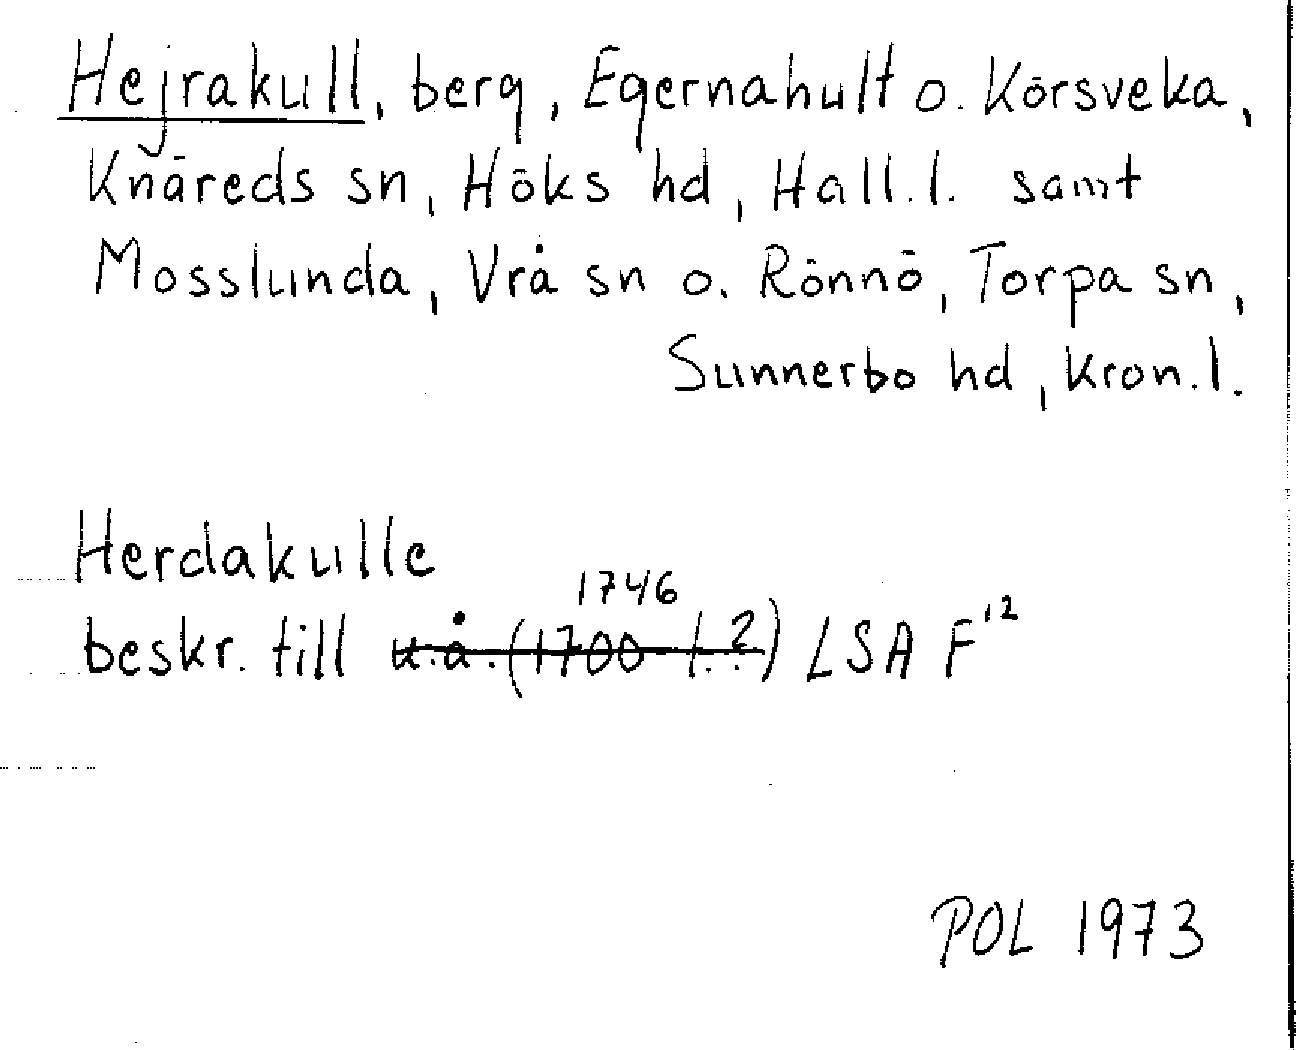 Hejrakull, berg, Egernahult o. Körsveka,
Knäreds sn, Höks hd, Hall.l. samt
Mosslunda, Vrå sn o. Rönnö, Torpa sn,
Sunnerbo hd, Kron.l.
Herdakulle
1746
beskr. till u.å. (1700-t.?) LSA F12
POL 1973